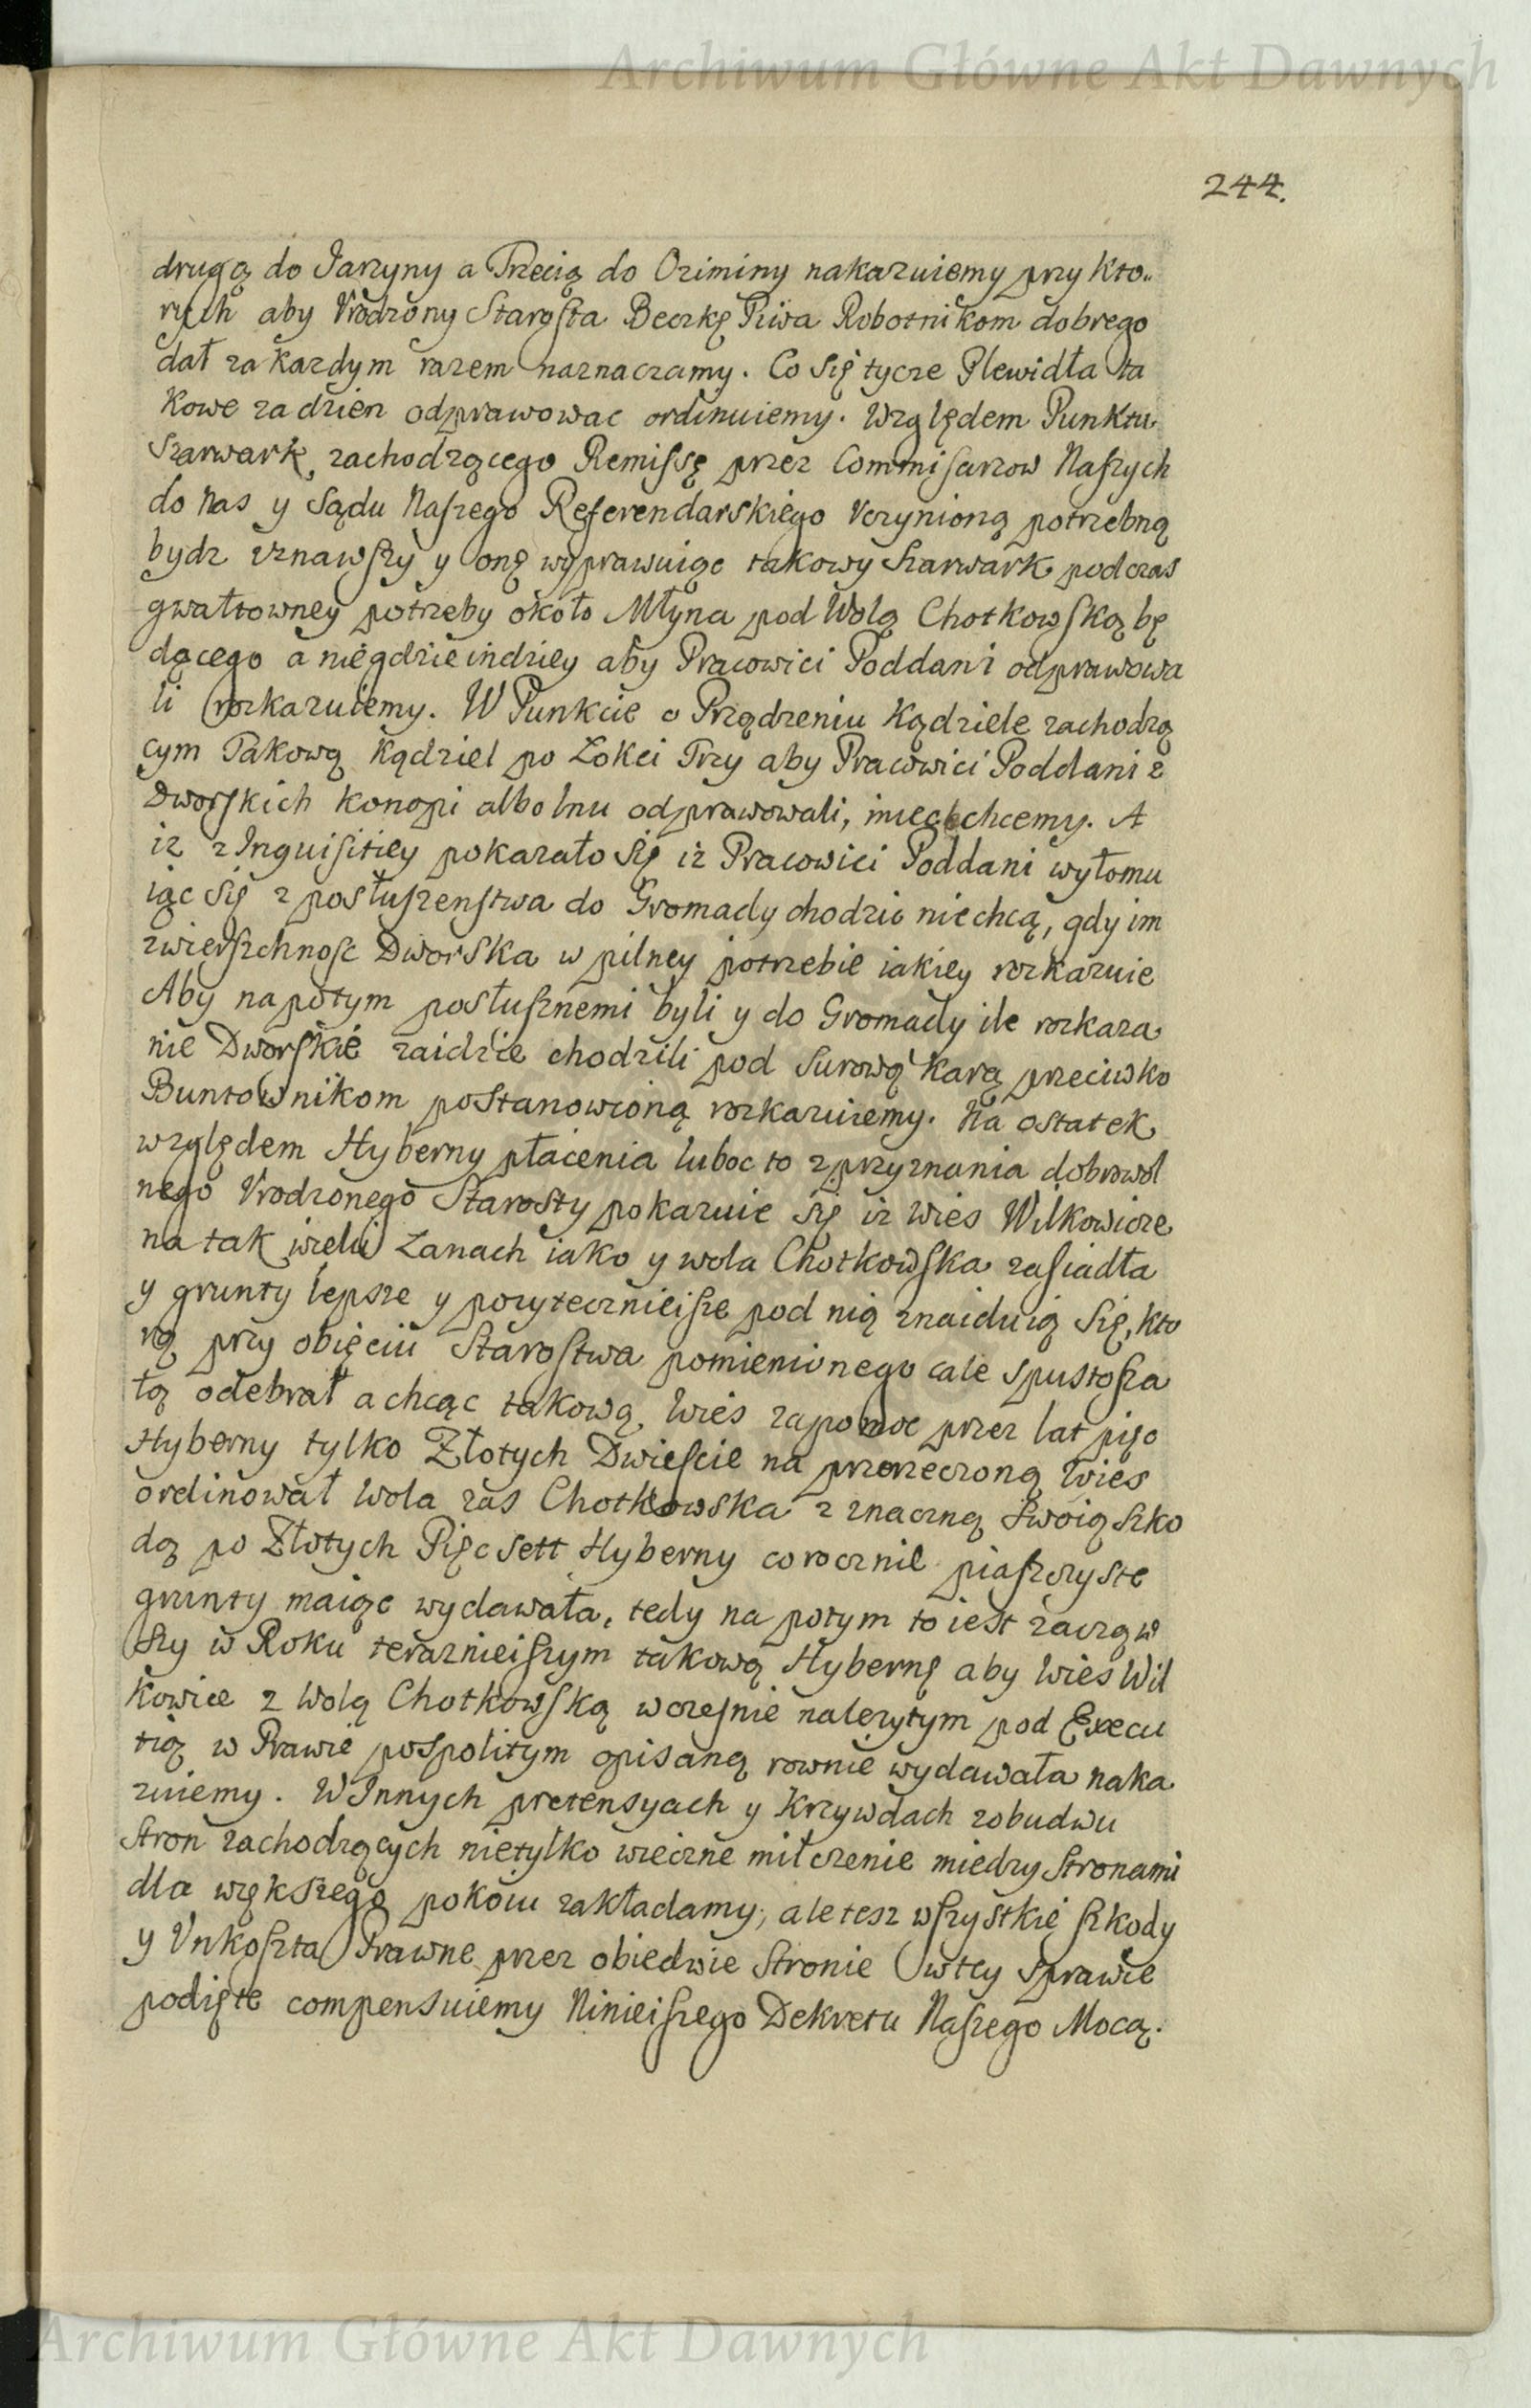 Archiwum Główne Akt Dawnych
244.
drugą do Jarzyny a Trzecią do Oziminy nakazuiemy przy kto„
rych aby Vrodzony Starosta Beczkę Piwa Robotnikom dobrego
dał za kazdym razem naznaczamy. Co się tycze Plewidła ta
kowe za dzien odprawowac ordinuiemy. Względem Punktu
Szarwark zachodzącego Remissę przez Commisarzow Naszych
do Nas y Sądu Naszego Referendarskiego Vczynioną potrzebną
bydz vznawszy y onę wyprawuiąc takowy szarwark podczas
gwałtowney potrzeby około Młyna pod Wolą Chotkowską bę
dącego a niegdzieindziey aby Pracowici Poddani odprawowa
li rozkazuiemy. W Punkcie o Prządzeniu Kądziele zachodzą
cym Takową kądziel po Łokci Trzy aby Pracowici Poddani z
Dworskich konopi albo lnu odprawowali, miec chcemy. A
iz z Inquisitiey pokazało się iz Pracowici Poddani wyłomu
iąc się z posłuszenstwa do Gromady chodzic niechcą, gdy im
zwierzchnosc Dworska w pilney potrzebie iakiey rozkazuie
Aby napotym posłusznemi byli y do Gromady ile rozkaza
nie Dworskie zaidzie chodzili pod surową karą przeciwko
Buntownikom postanowioną rozkazuiemy. Na ostatek
względem Hyberny płacenia luboc to z przyznania dobrowol
nego Vrodzonego Starosty pokazuie się iz wies Wilkowice
na tak wielu Łanach iako y wola Chotkowska zasiadła
y grunty lepsze y pozytecznieisze pod nią znaiduią się, kto
rą przy obięciu Starostwa pomienionego cale spustosza
łą odebrał a chcąc takową Wies zapomoc przez lat pięc
Hyberny tylko Złotych Dwiescie na przerzeczoną Wies
ordinował Wola zas Chotkowska z znaczną swoią szko
dą po Złotych Pięc sett Hyberny corocznie piaszczyste
grunty maiąc wydawała, tedy na potym to iest zacząw
szy w Roku teraznieiszym takową Hybernę aby Wies Wil
kowice z Wolą Chotkowską wczesnie nalezytym pod Execu
tią w Prawie pospolitym opisaną rownie wydawała naka
zuiemy. W Innych pretensyach y Krzywdach zobudwu
Stron zachodzących nietylko wieczne milczenie miedzy Stronami
dla większego pokoiu zakładamy, ale tesz wszystkie szkody
y Vnkoszta Prawne przez obiedwie Stronie w tey sprawie
podięte compensuiemy Ninieiszego Dekretu Naszego Mocą.
Archiwum Główne Akt Dawnych